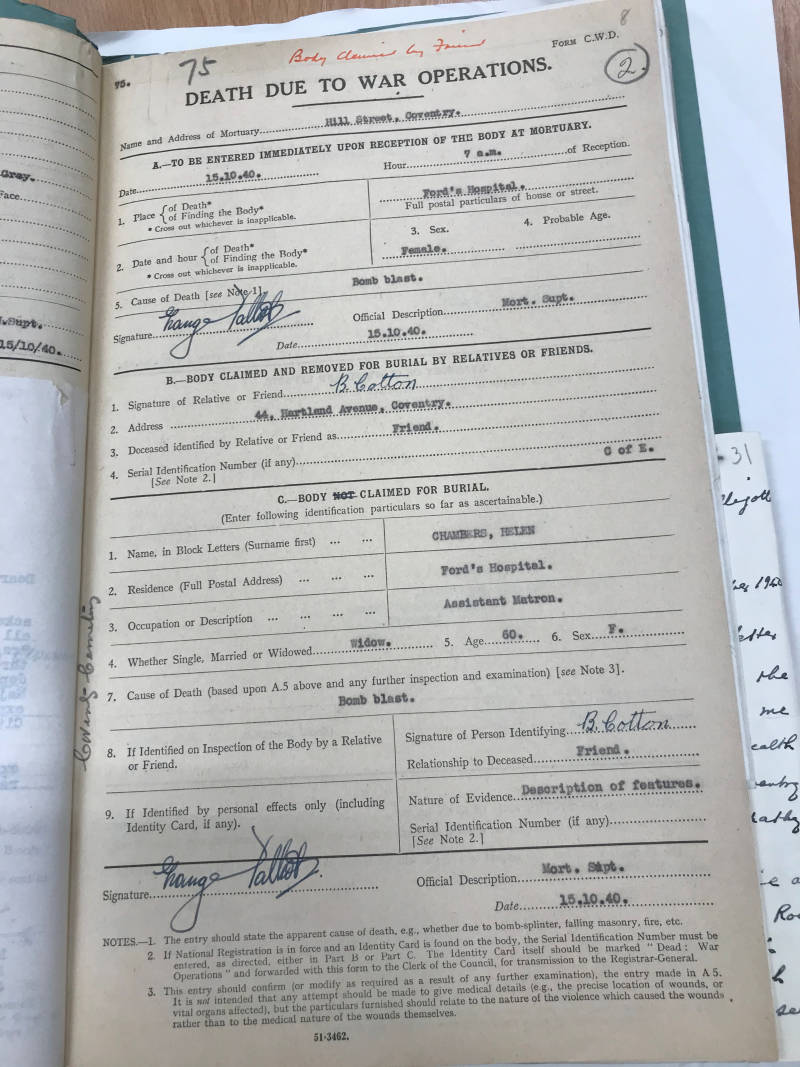 8
75
Body Claimed by Friend
FORM C.W.D.
75.
2
DEATH DUE TO WAR OPERATIONS.
Name and Address of Mortuary Hill Street, Coventry.
A.—TO BE ENTERED IMMEDIATELY UPON RECEPTION OF THE BODY AT MORTUARY.
Date 15.10.40. Hour 7 a.m. of Reception.
1. Place {of Death*
{of Finding the Body*
* Cross out whichever is inapplicable.
Ford's Hospital.
Full postal particulars of house or street.
2. Date and hour {of Death*
{of Finding the Body*
* Cross out whichever is inapplicable.
3. Sex. 4. Probable Age.
Female.
5. Cause of Death [see Note 1] Bomb blast.
Signature Talbot Official Description Mort. Supt.
Date 15.10.40.
B.—BODY CLAIMED AND REMOVED FOR BURIAL BY RELATIVES OR FRIENDS.
1. Signature of Relative or Friend B. Cotton
2. Address 44, Hartland Avenue, Coventry.
3. Deceased identified by Relative or Friend as Friend.
4. Serial Identification Number (if any)
[See Note 2.]
C of E.
C.—BODY NOT CLAIMED FOR BURIAL.
(Enter following identification particulars so far as ascertainable.)
1. Name, in Block Letters (Surname first) ... ... CHAMBERS, HELEN
2. Residence (Full Postal Address) ... ... ... Ford's Hospital.
3. Occupation or Description ... ... ... ... Assistant Matron.
4. Whether Single, Married or Widowed Widow. 5. Age 60. 6. Sex F.
7. Cause of Death (based upon A.5 above and any further inspection and examination) [see Note 3].
Bomb blast.
8. If Identified on Inspection of the Body by a Relative
or Friend.
Signature of Person Identifying B. Cotton
Relationship to Deceased Friend.
9. If Identified by personal effects only (including
Identity Card, if any).
Nature of Evidence Description of features.
Serial Identification Number (if any)
[See Note 2.]
Signature Talbot Official Description Mort. Supt.
Date 15.10.40.
NOTES.—1. The entry should state the apparent cause of death, e.g., whether due to bomb-splinter, falling masonry, fire, etc.
2. If National Registration is in force and an Identity Card is found on the body, the Serial Identification Number must be
entered, as directed, either in Part B or Part C. The Identity Card itself should be marked "Dead: War
Operations" and forwarded with this form to the Clerk of the Council, for transmission to the Registrar-General.
3. This entry should confirm (or modify as required as a result of any further examination), the entry made in A 5.
It is not intended that any attempt should be made to give medical details (e.g., the precise location of wounds, or
vital organs affected), but the particulars furnished should relate to the nature of the violence which caused the wounds
rather than to the medical nature of the wounds themselves.
51-3462.
Gray.
Face
.Supt.
15/10/40.
31
1940
the
me